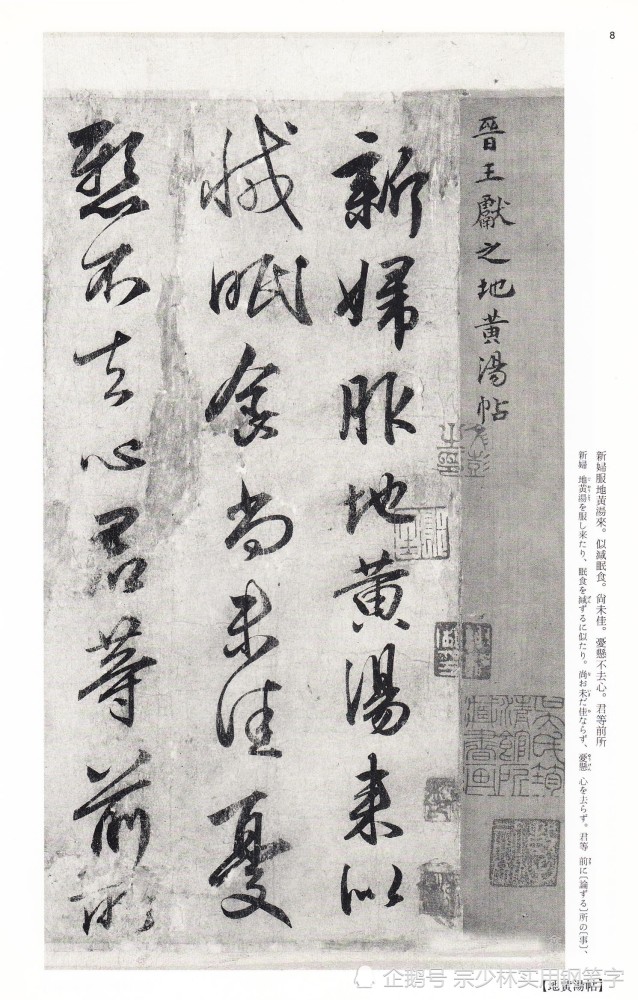 8
新婦服地黄湯來。似減眠食。尙未佳。憂懸不去心。君等前所
新婦 地黄湯を服し来たり、眠食を減ずるに似たり。尚お未だ佳ならず、憂懸 心を去らず。君等 前に〔論ずる〕所の〔事〕、
晉王獻之地黄湯帖
新婦服地黄湯来似
減眠食尚未佳憂
懸不去心君等前所
【地黄湯帖】
企鹅号 宗少林实用钢笔字